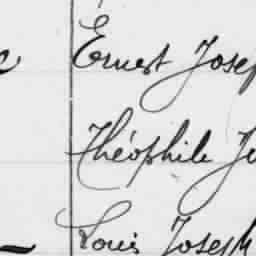 Ernest Josep
Théophile Ju
Louis Joseph